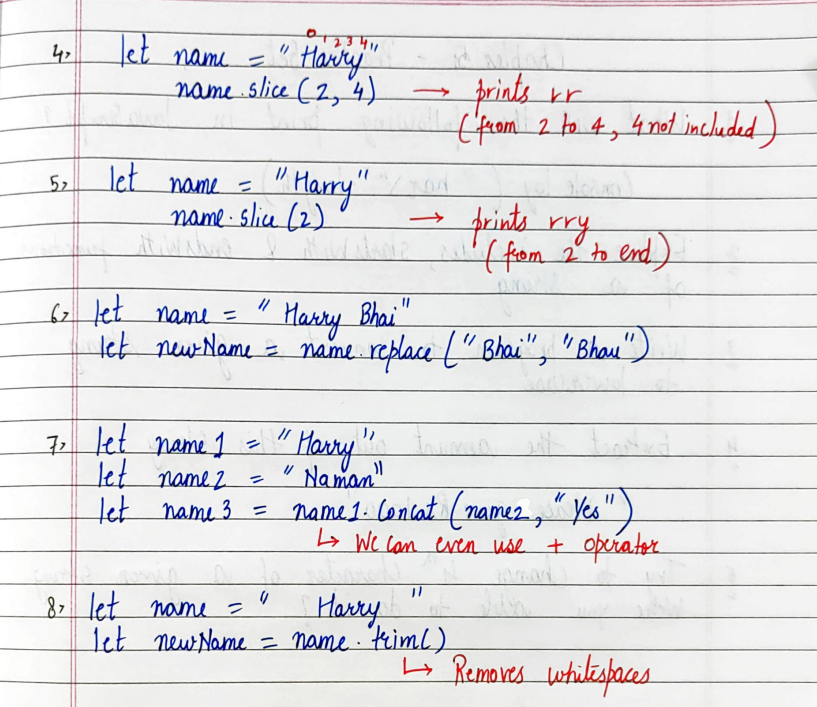 0 1 2 3 4
4> let name = "Harry"
name.slice(2, 4) → prints rr
(from 2 to 4, 4 not included)
5> let name = "Harry"
name.slice(2) → prints rry
(from 2 to end)
6> let name = "Harry Bhai"
let newName = name.replace("Bhai", "Bhau")
7> let name1 = "Harry"
let name2 = "Naman"
let name3 = name1.Concat(name2, "Yes")
↳ We can even use + operator
8> let name = " Harry "
let newName = name.trim()
↳ Removes whitespaces